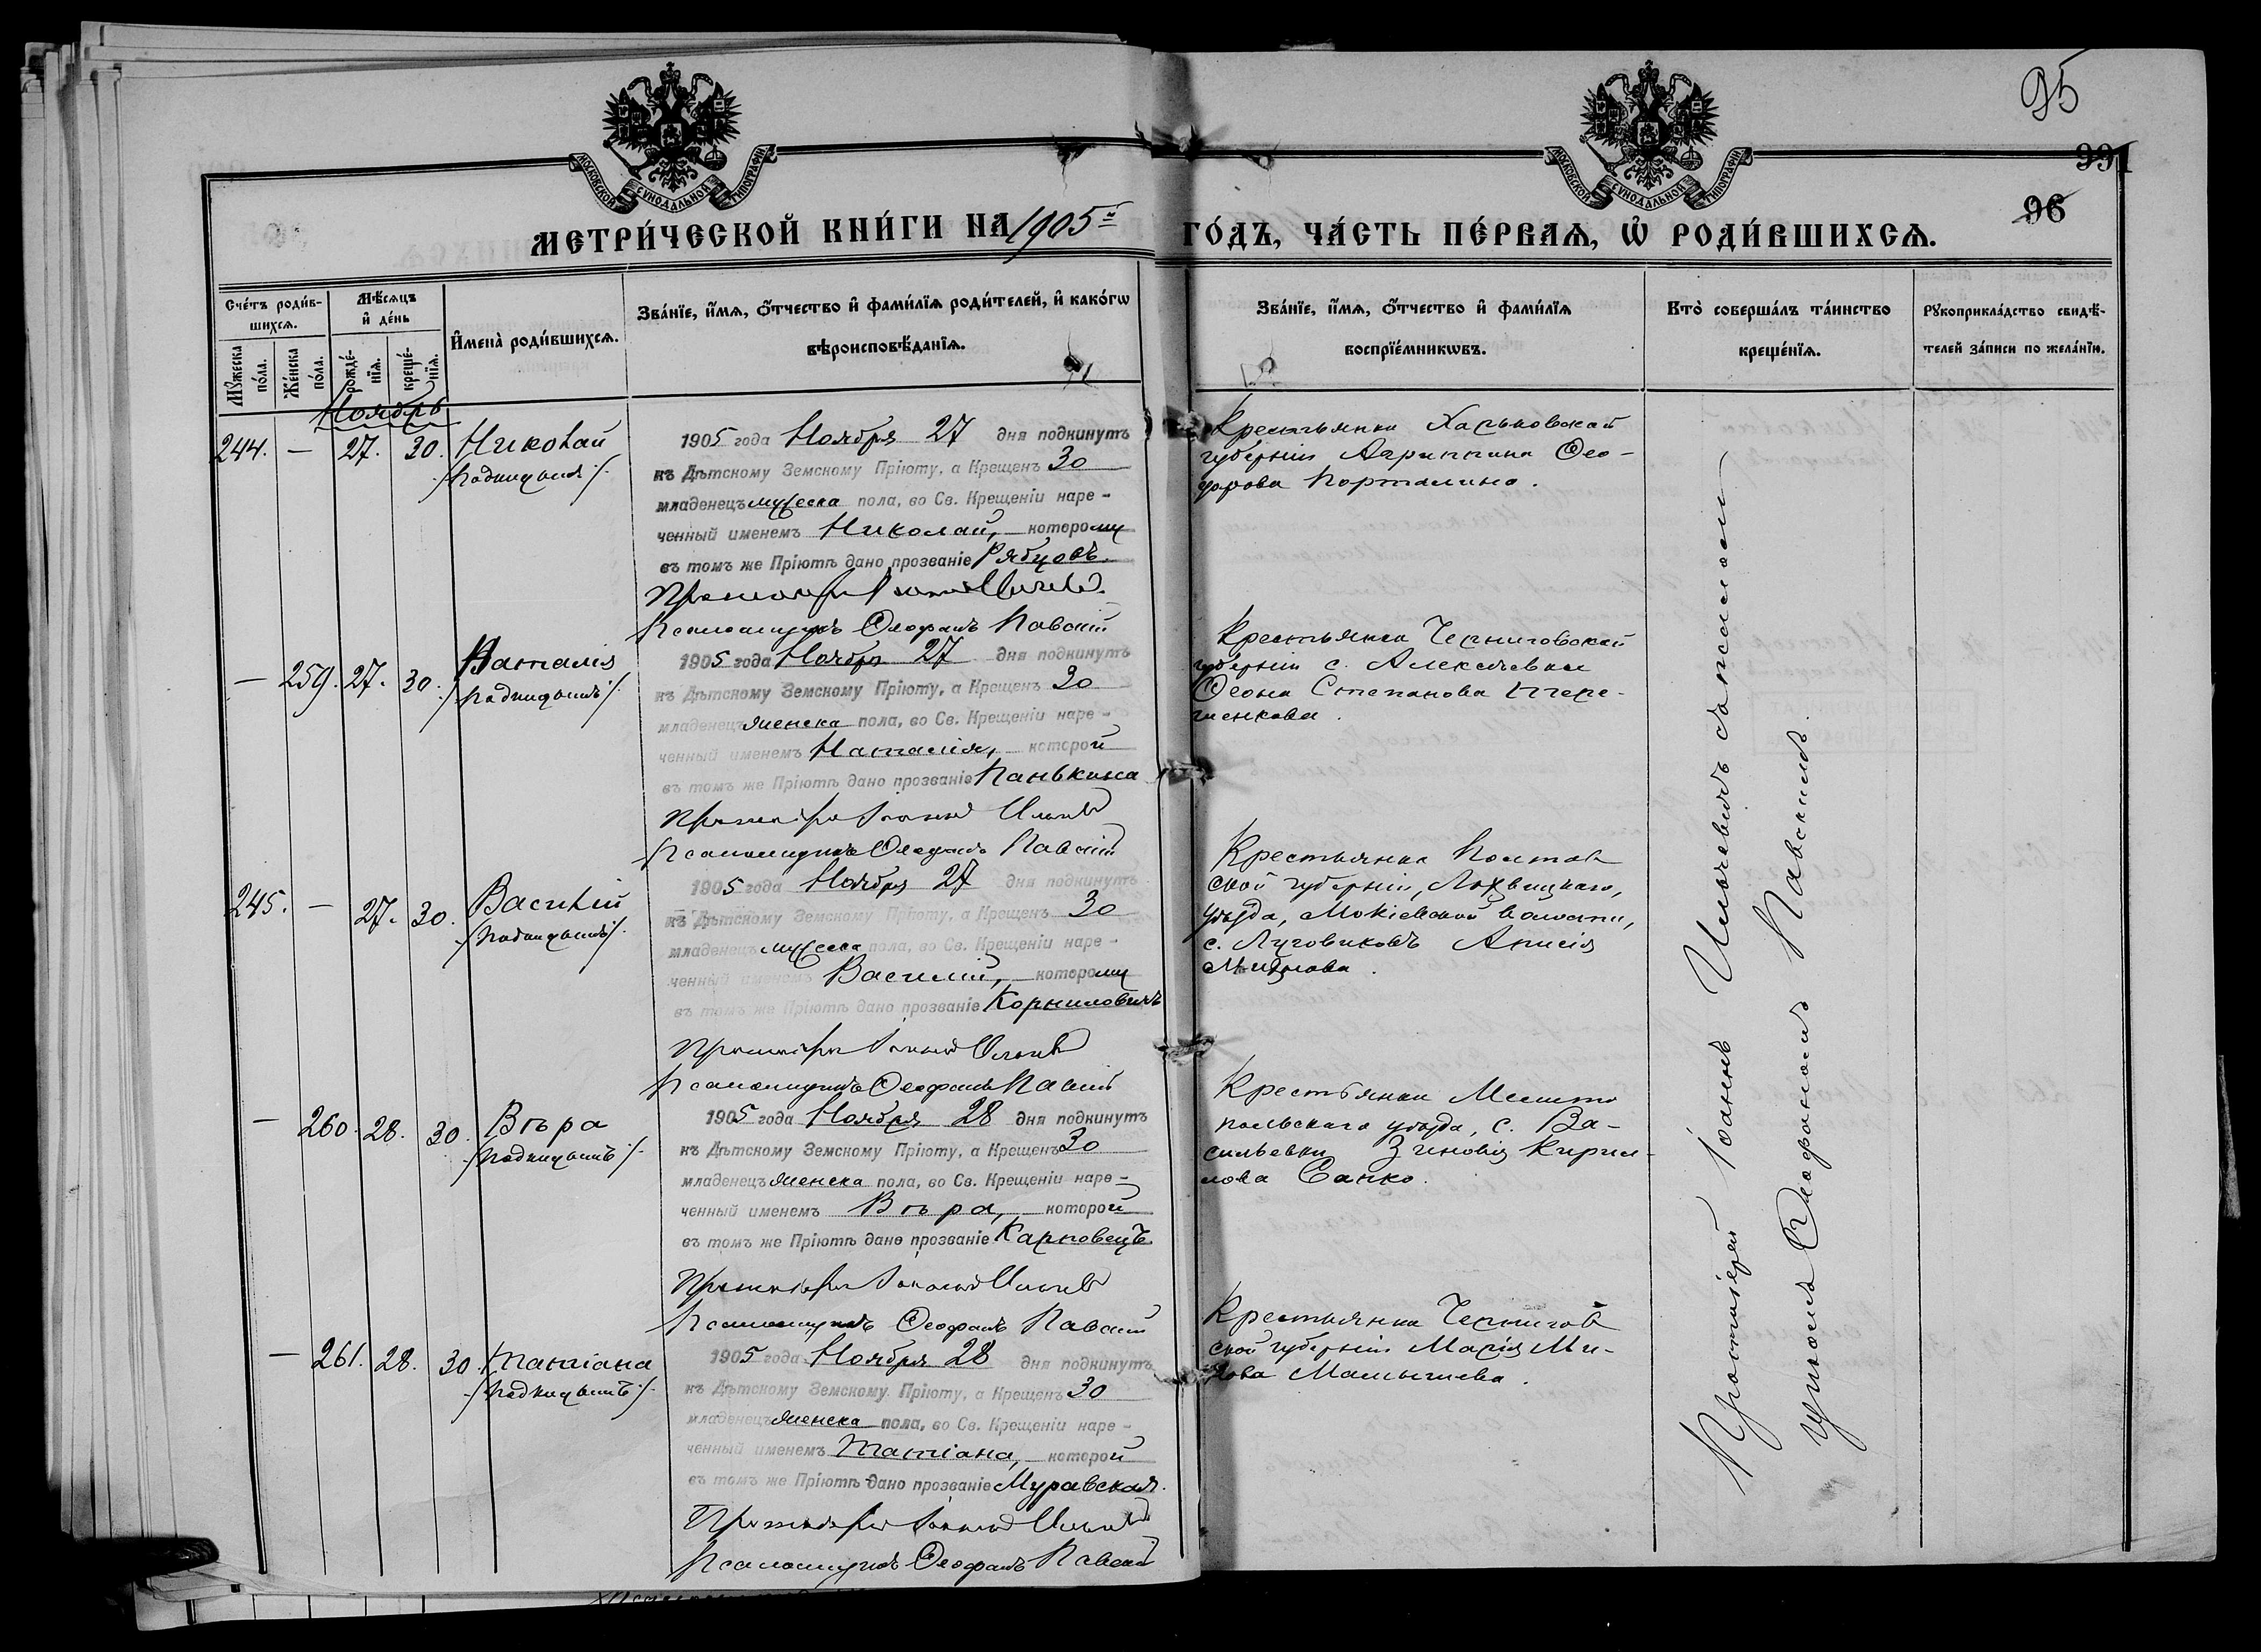 95
991
96
МОСКОВСКОЙ СУНОДАЛЬНОЙ ТИПОГРАФІИ
МОСКОВСКОЙ СУНОДАЛЬНОЙ ТИПОГРАФІИ
МЕТРИ́ЧЕСКОЙ КНИ́ГИ НА 1905й ГО́ДЪ, ЧА́СТЬ ПЕ́РВАѦ, Ѡ҆ РОДИ́ВШИХСѦ.
Сче́тъ роди́в-
шихсѧ.
Мꙋ́жеска по́ла.
Же́нска по́ла.
Мѣ́сѧцъ
и҆ де́нь
рожде́-
нїѧ.
креще́-
нїѧ.
И҆мена̀ роди́вшихсѧ.
Зва́нїе, и҆́мѧ, ѻ҆́тчество и҆ фами́лїѧ роди́телей, и҆ како́гѡ
вѣроисповѣ́данїѧ.
Зва́нїе, и҆́мѧ, ѻ҆́тчество и҆ фами́лїѧ
воспрїе́мникѡвъ.
Кто̀ соверша́лъ та́инство
креще́нїѧ.
Рꙋкоприкла́дство свидѣ́-
телей за́писи по жела́нїю.
Ноябрь
244. — 27. 30. Николай
/Подкидышъ/.
1905 года Ноября 27 дня подкинутъ
къ Дѣтскому Земскому Пріюту, а Крещенъ 30
младенецъ мужеска пола, во Св. Крещеніи наре-
ченный именемъ Николай, которому
въ томъ же Пріютѣ дано прозваніе Рябцовъ.
Протоіерей Іоаннъ Ильичевъ
Псаломщикъ Ѳеофанъ Павскій
Крестьянка Харьковской
губерніи Агриппина Ѳео-
дорова Порталина.
— 259. 27. 30. Наталія
/Подкидышъ/.
1905 года Ноября 27 дня подкинутъ
къ Дѣтскому Земскому Пріюту, а Крещенъ 30
младенецъ женска пола, во Св. Крещеніи наре-
ченный именемъ Наталія, которой
въ томъ же Пріютѣ дано прозваніе Панькина
Протоіерей Іоаннъ Ильичевъ
Псаломщикъ Ѳеофанъ Павскій
Крестьянка Черниговской
губерніи с. Алексѣевки
Ѳеона Степанова
245. — 27. 30. Василій
/Подкидышъ/.
1905 года Ноября 27 дня подкинутъ
къ Дѣтскому Земскому Пріюту, а Крещенъ 30
младенецъ мужеска пола, во Св. Крещеніи наре-
ченный именемъ Василій, которому
въ томъ же Пріютѣ дано прозваніе Корниловичъ
Протоіерей Іоаннъ Ильичевъ
Псаломщикъ Ѳеофанъ Павскій
Крестьянка Полтав
ской губерніи, Лохвицкаго,
уѣзда, Мокіевской волости,
с. Луговиковъ Анисія
— 260. 28. 30. Вѣра
/Подкидышъ/.
1905 года Ноября 28 дня подкинутъ
къ Дѣтскому Земскому Пріюту, а Крещенъ 30
младенецъ женска пола, во Св. Крещеніи наре-
ченный именемъ Вѣра, которой
въ томъ же Пріютѣ дано прозваніе Карповецъ.
Протоіерей Іоаннъ Ильичевъ
Псаломщикъ Ѳеофанъ Павскій
Крестьянка Мелито
польскаго уѣзда, с. Ва-
сильевки Зиновія Кирил-
лова Санко.
— 261. 28. 30. Татіана
/Подкидышъ/.
1905 года Ноября 28 дня подкинутъ
къ Дѣтскому Земскому Пріюту, а Крещенъ 30
младенецъ женска пола, во Св. Крещеніи наре-
ченный именемъ Татіана, которой
въ томъ же Пріютѣ дано прозваніе Муравская.
Протоіерей Іоаннъ Ильичевъ
Псаломщикъ Ѳеофанъ Павскій
Крестьянка Чернигов
ской губерніи Марія
Протоіерей Іоаннъ Ильичевъ съ псалом
щикомъ Ѳеофаномъ Павскимъ.